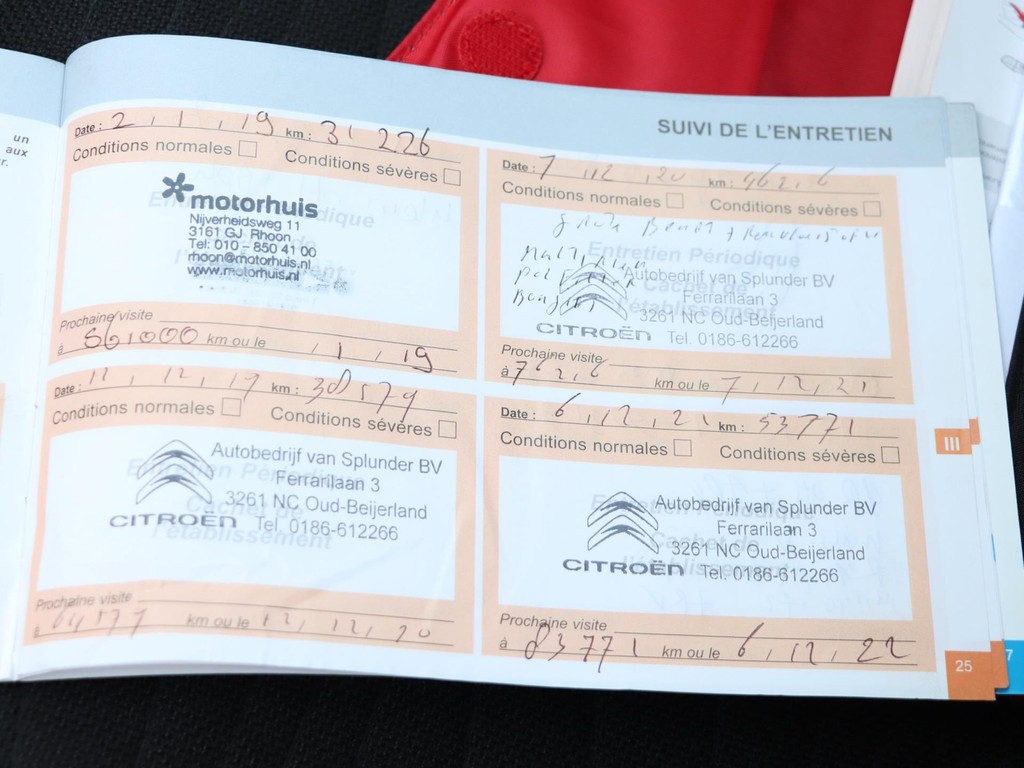 un
aux
r.
SUIVI DE L'ENTRETIEN
Date : 2 , 1 , 19 km : 31 226
Conditions normales
Conditions sévères
motorhuis
Nijverheidsweg 11
3161 GJ Rhoon
Tel: 010 - 850 41 00
rhoon@motorhuis.nl
www.motorhuis.nl
Prochaine visite
à 56,000 km ou le , 1 , 19
Date : 11 , 12 , 19 km : 38579
Conditions normales
Conditions sévères
Entretien Périodique
Cachet de
l'établissement
Autobedrijf van Splunder BV
Ferrarilaan 3
3261 NC Oud-Beijerland
CITROËN Tel. 0186-612266
Prochaine visite
à km ou le 12, 12, 20
Date : 7 , 12 , 20 km : 462,6
Conditions normales
Conditions sévères
Grote Beurt +
Entretien Périodique
Cachet de
l'établissement
Autobedrijf van Splunder BV
Ferrarilaan 3
3261 NC Oud-Beijerland
CITROËN Tel. 0186-612266
Prochaine visite
à 762,6 km ou le 7 , 12 , 21
Date : 6 , 12 , 21 km : 53771
Conditions normales
Conditions sévères
Entretien Périodique
Cachet de
l'établissement
Autobedrijf van Splunder BV
Ferrarilaan 3
3261 NC Oud-Beijerland
CITROËN Tel. 0186-612266
Prochaine visite
à 83771 km ou le 6 , 12 , 22
III
25
7